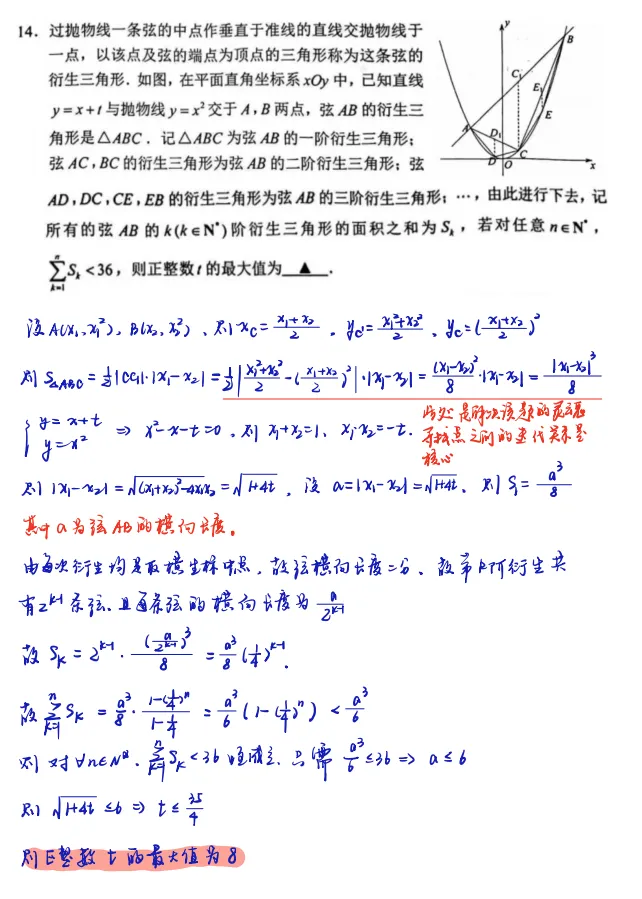 14. 过抛物线一条弦的中点作垂直于准线的直线交抛物线于
一点，以该点及弦的端点为顶点的三角形称为这条弦的
衍生三角形．如图，在平面直角坐标系 xOy 中，已知直线
y=x+t 与抛物线 y=x² 交于 A,B 两点，弦 AB 的衍生三
角形是△ABC．记△ABC 为弦 AB 的一阶衍生三角形；
弦 AC,BC 的衍生三角形为弦 AB 的二阶衍生三角形；弦
y
B
C₁
E₁
E
A
D₁
C
D
O
x
AD,DC,CE,EB 的衍生三角形为弦 AB 的三阶衍生三角形；…，由此进行下去，记
所有的弦 AB 的 k(k∈N*) 阶衍生三角形的面积之和为 Sₖ，若对任意 n∈N*，
∑ₖ₌₁ⁿ Sₖ<36，则正整数 t 的最大值为 ▲ ．
设A(x₁,x₁²), B(x₂,x₂²), 则 x_C=(x₁+x₂)/2, y_C'=(x₁²+x₂²)/2, y_C=((x₁+x₂)/2)²
则 S△ABC=½|CC₁|·|x₁-x₂|=½|(x₁²+x₂²)/2-((x₁+x₂)/2)²|·|x₁-x₂|=(x₁-x₂)²/8·|x₁-x₂|=|x₁-x₂|³/8
{y=x+t y=x² ⇒ x²-x-t=0, 则 x₁+x₂=1, x₁·x₂=-t.
此处是解决该题的
点之间的迭代关系是
核心
则 |x₁-x₂|=√((x₁+x₂)²-4x₁x₂)=√(1+4t), 设 a=|x₁-x₂|=√(1+4t), 则 S₁=a³/8
其中a为弦AB的横向长度。
由每次衍生均是取横坐标中点, 故弦横向长度二分、故第k阶衍生共
有2^(k-1)条弦、且每条弦的横向长度为 a/2^(k-1)
故 Sₖ=2^(k-1)·(a/2^(k-1))³/8=a³/8(1/4)^(k-1).
故 ∑ₖ₌₁ⁿ Sₖ=a³/8·(1-(1/4)ⁿ)/(1-1/4)=a³/6(1-(1/4)ⁿ)<a³/6
则对∀n∈N*, ∑ₖ₌₁ⁿ Sₖ<36恒成立, 只需 a³/6≤36 ⇒ a≤6
则 √(1+4t)≤6 ⇒ t≤35/4
则正整数 t 的最大值为 8